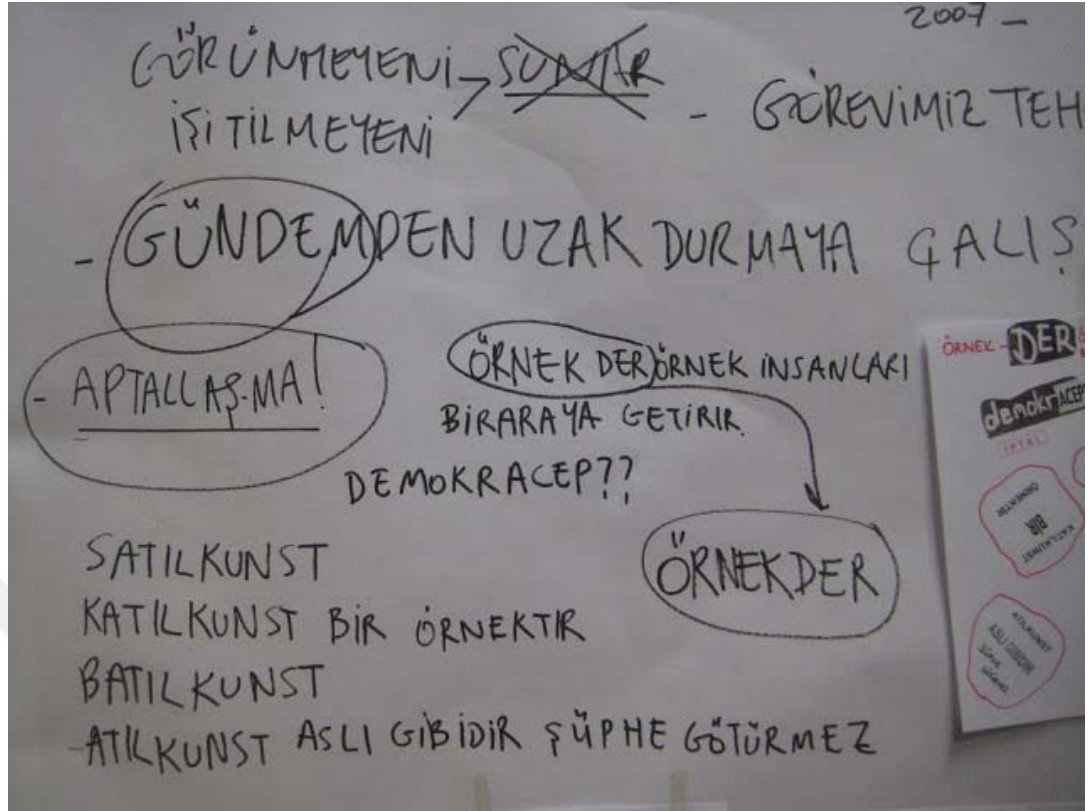 2007 -
GÖRÜNMEYENİ SUNAR
İŞİTİLMEYENİ
- GÖREVİMİZ TEH
- GÜNDEMDEN UZAK DURMAYA ÇALIŞ
- APTALLAŞ-MA!
ÖRNEK DER ÖRNEK İNSANLARI
BİRARAYA GETİRİR.
DEMOKRACEP??
ÖRNEKDER
SATILKUNST
KATILKUNST BİR ÖRNEKTİR
BATILKUNST
-ATILKUNST ASLI GİBİDİR ŞÜPHE GÖTÜRMEZ
ÖRNEK - DER
demokrACEP
(İPTAL)
KATILKUNST
BİR
ÖRNEKTİR
ATILKUNST
ASLI GİBİDİR
şüphe
götürmez